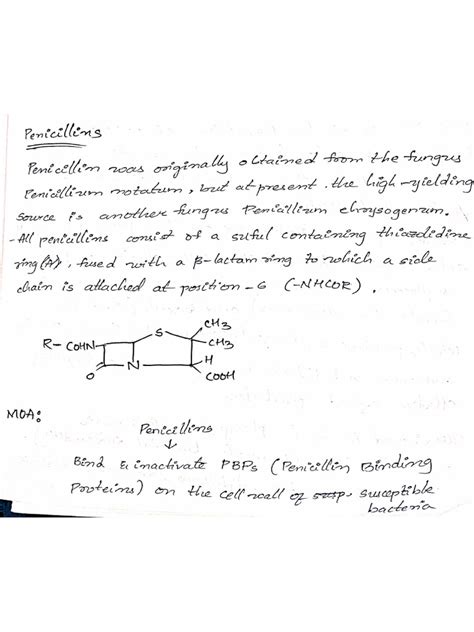 Penicillins
Penicillin was originally obtained from the fungus
Penicillium notatum, but at present. the high-yielding
source is another fungus Penicillium chrysogenum.
-All penicillins consist of a sulful containing thiazolidine
ring(A), fused with a β-lactam ring to which a side
chain is attached at position-6 (-NHCOR).
CH3
S
R-COHN
CH3
H
O
N
COOH
MOA:
Penicillins
↓
Bind & inactivate PBPs (Penicillin Binding
Proteins) on the cell wall of susp. susceptible
bacteria